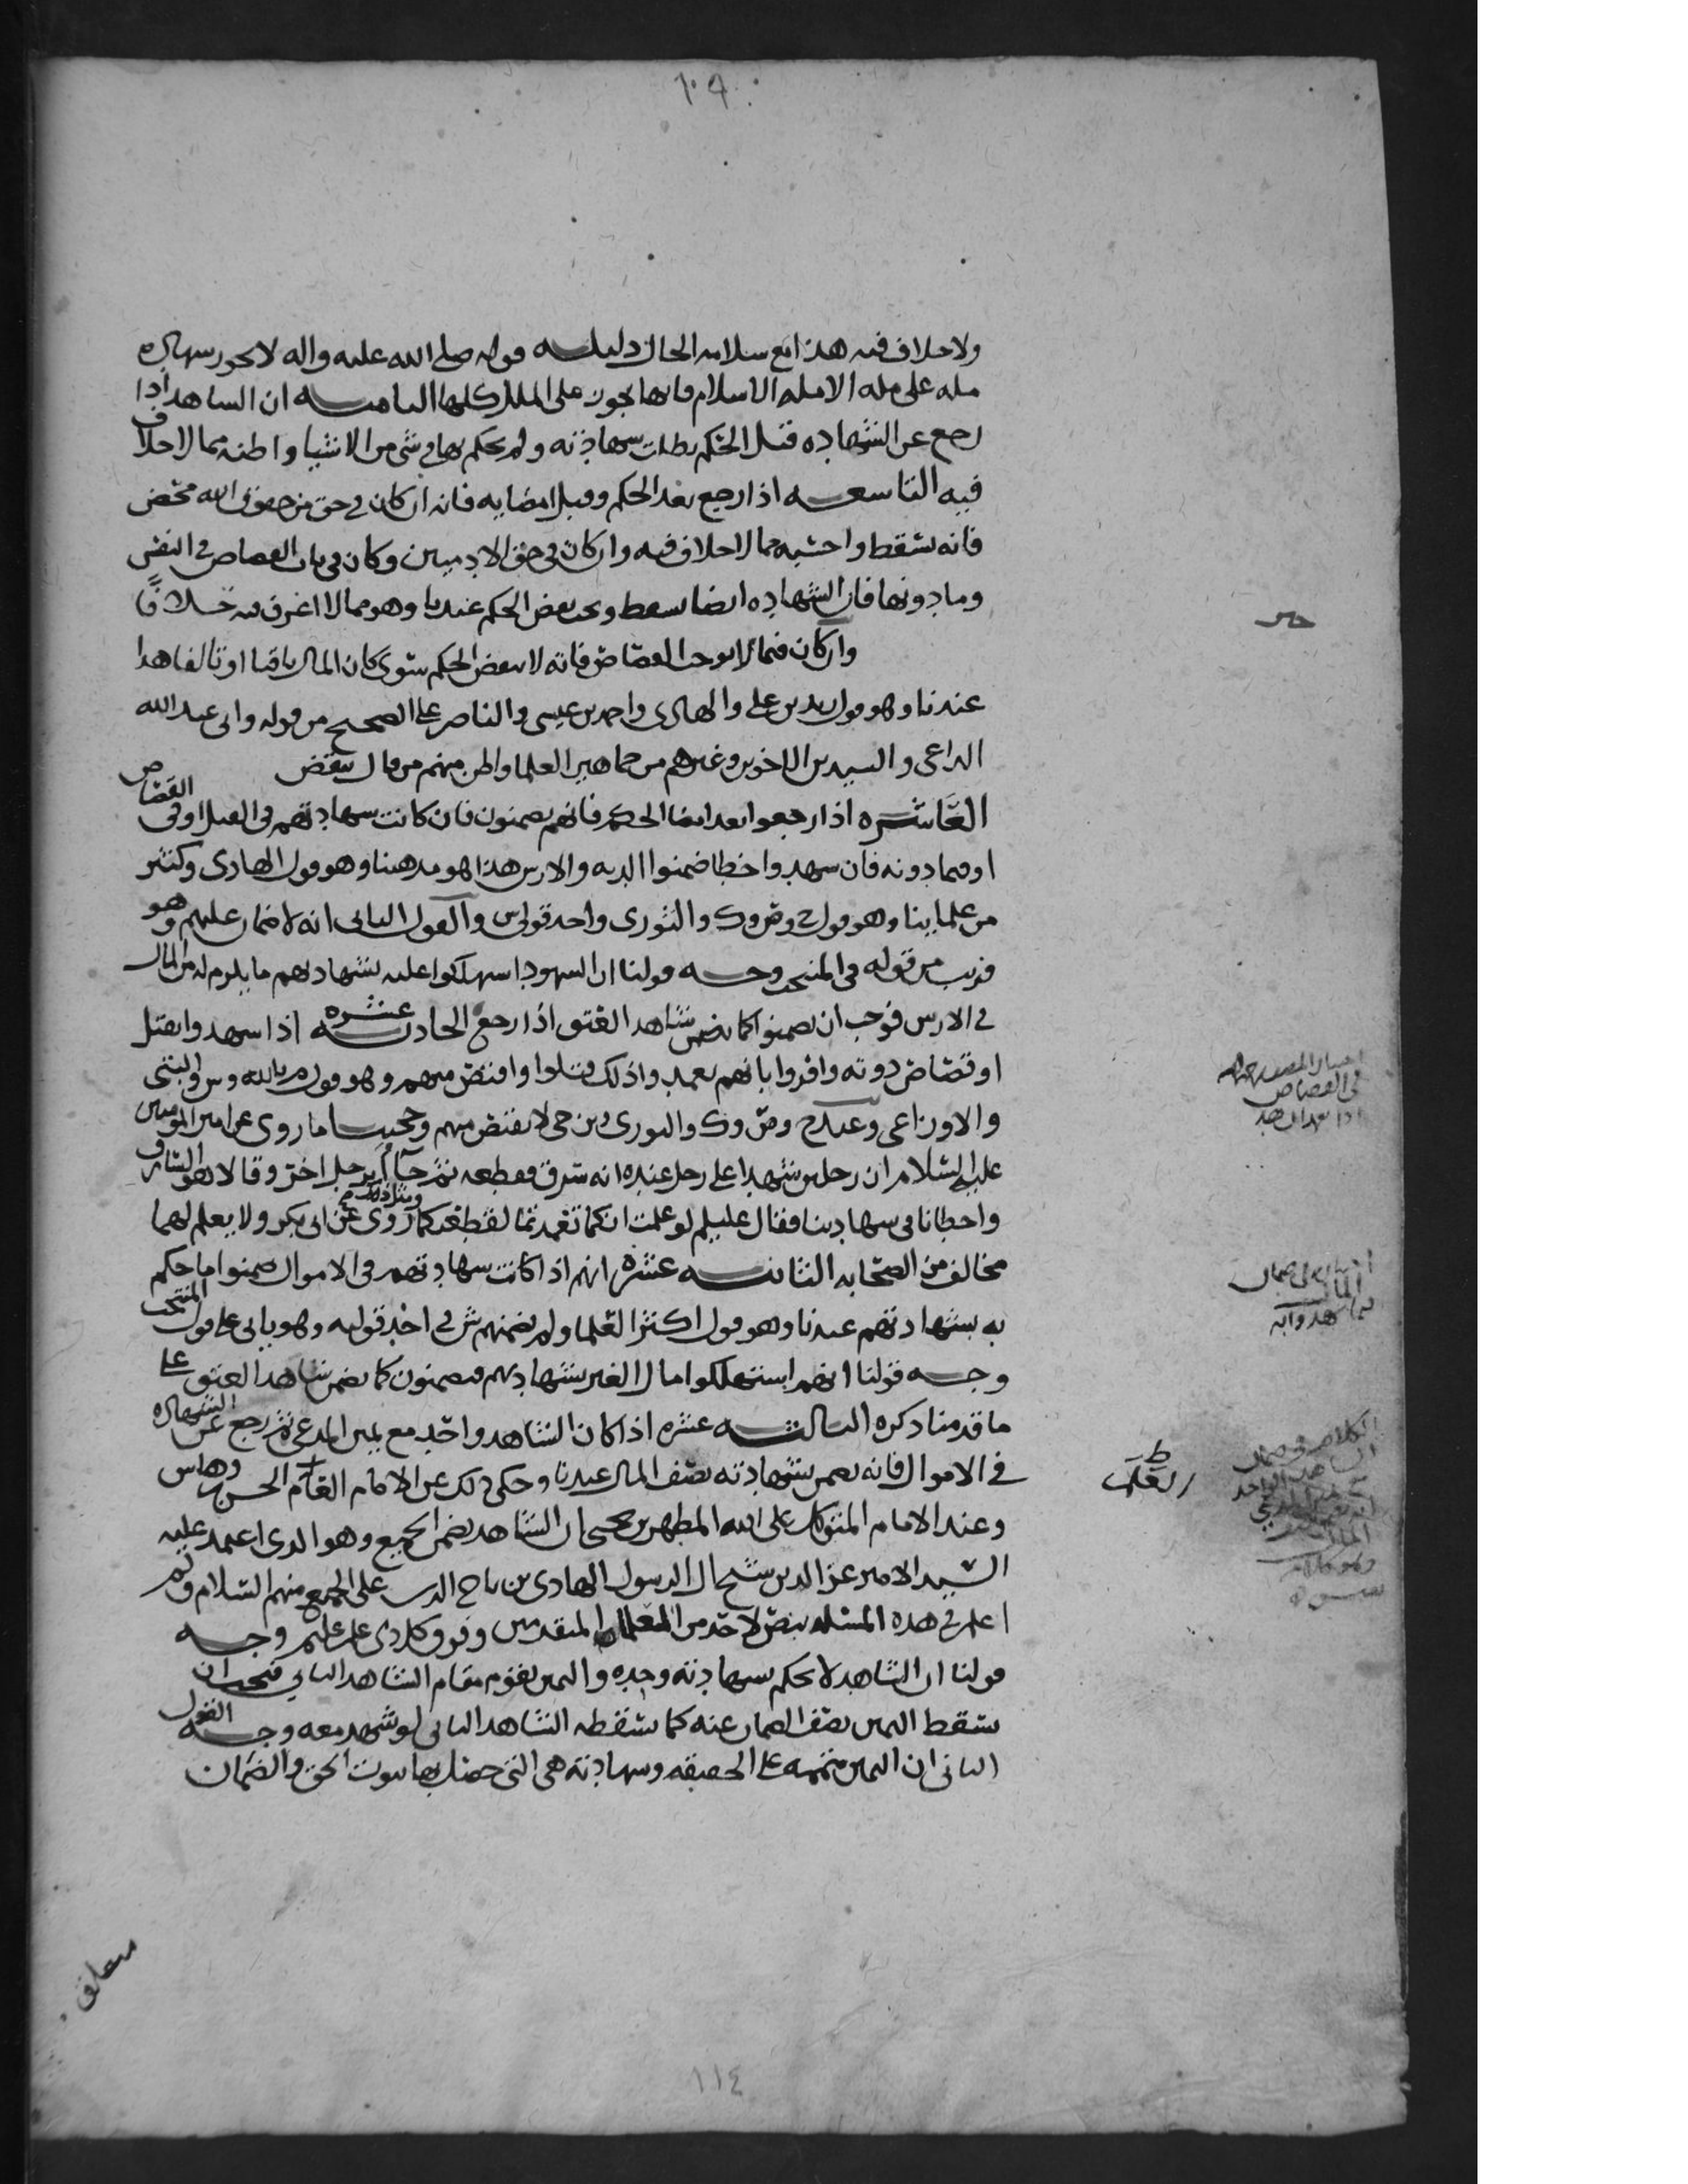 ١٠٩
ولا خلاف فيه هذا مع سلامه الحال دليله قوله صلى الله عليه واله لا تجوز شهاده
مله على مله الا مله الاسلام فانها تجوز على الملل كلها الثامنه ان الشاهد اذا
رجع عن الشهاده قبل الحكم بطلت شهادته ولم يحكم بها في شي من الاشيا واظنه مما لا خلاف
فيه التاسعه اذا رجع بعد الحكم وقبل امضايه فانه ان كان في حق من حقوق الله محض
فانه يسقط واحسبه مما لا خلاف فيه وان كان في حق الادميين وكان في باب القصاص في النفس
وما دونها فان الشهاده ايضا تسقط وينقض الحكم عندنا وهو مما لا اعرف فيه خلافًا
وان كان فيما لا يوجب القصاص فانه لا ينقض الحكم سوى كان المال باقيا او تالفا هذا
عندنا وهو قول زيد بن علي والهادي واحمد بن عيسى والناصر على الصحيح من قوله وابي عبد الله
الداعي والسيدين الاخوين وغيرهم من جماهير العلما واظن منهم من قال ينقض
العاشره اذا رجعوا بعد امضا الحكم فانهم يضمنون فان كانت شهادتهم في القتل او في القصاص
او فيما دونه فان شهدوا خطا ضمنوا الديه والارش هذا هو مذهبنا وهو قول الهادي وكثير
من علماينا وهو قول ح وص وك والثوري واحد قولي ش والقول الثاني انه لا ضمان عليهم وهو
قريب من قوله في المنتخب وجه قولنا ان الشهود استهلكوا عليه بشهادتهم ما يلزم له من المال
في الارش فوجب ان يضمنوا كما يضمن شاهد العتق اذا رجع الحاديه عشره اذا شهدوا بقتل
او قصاص دونه واقروا بانهم تعمدوا ذلك قتلوا او اقتص منهم وهو قول م بالله وش والبتي
والاوزاعي وعند ح وص وك والثوري وبن حي لا يقتص منهم وحجتنا ما روي عن امير المومنين
عليه السلام ان رجلين شهدا على رجل عنده انه سرق فقطعه ثم جآآ برجل اخر وقالا هو السارق
واخطانا في شهادتنا فقال عليلم لو علمت انكما تعمدتما لقطعتكما وروي مثل ذلك عن ابي بكر ولا يعلم لهما
مخالف من الصحابه الثانيه عشره انهم اذا كانت شهادتهم في الاموال ضمنوا ما حكم
به بشهادتهم عندنا وهو قول اكثر العلما ولم يضمنهم ش في احد قوليه وهو ياتي على قول المنتخب
وجه قولنا انهم استهلكوا مال الغير بشهادتهم فيضمنون كما يضمن شاهد العتق على
ما قدمنا ذكره الثالثه عشره اذا كان الشاهد واحد مع يمين المدعي ثم رجع عن الشهاده
في الاموال فانه يضمن بشهادته نصف المال عندنا وحكي ذلك عن الامام القايم الحسن بن وهاس
وعند الامام المتوكل على الله المطهر بن يحيى ان الشاهد يضمن الجميع وهو الذي اعتمد عليه
السيد الامير عز الدين شيخ ال الرسول الهادي بن تاج الدين على الجميع منهم السلام ولم
اعلم في هذه المسئله بنص لاحد من العلما المتقدمين وفوق كل ذي علم عليم وجه
قولنا ان الشاهد لا يحكم بشهادته وحده واليمين تقوم مقام الشاهد الثاني فيجب ان
يسقط اليمين نصف الضمان عنه كما يسقطه الشاهد الثاني لو شهد معه وجه القول
الثاني ان اليمين متممه على الحقيقه وشهادته هي التي حصل بها ثبوت الحق والضمان
متعلق
في القصاص
١١٤